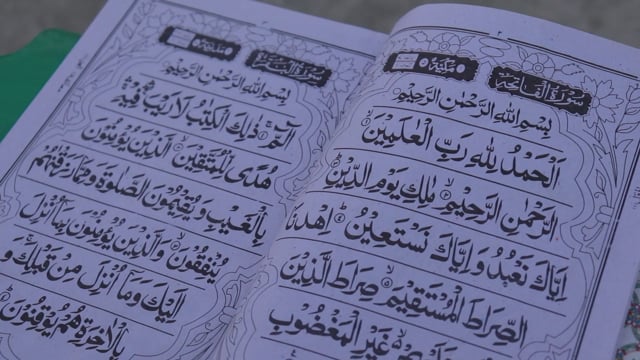 سُوْرَةُ الْفَاتِحَةِ مَكِّيَّةٌ
بِسْمِ اللهِ الرَّحْمٰنِ الرَّحِيْمِ
اَلْحَمْدُ لِلّٰهِ رَبِّ الْعٰلَمِيْنَ
الرَّحْمٰنِ الرَّحِيْمِ مٰلِكِ يَوْمِ الدِّيْنِ
اِيَّاكَ نَعْبُدُ وَ اِيَّاكَ نَسْتَعِيْنُ اِهْدِنَا
الصِّرَاطَ الْمُسْتَقِيْمَ صِرَاطَ الَّذِيْنَ
غَيْرِ الْمَغْضُوْبِ
سُوْرَةُ الْبَقَرَةِ مَدَنِيَّةٌ
بِسْمِ اللهِ الرَّحْمٰنِ الرَّحِيْمِ
الٓمّٓ ذٰلِكَ الْكِتٰبُ لَا رَيْبَ فِيْهِ
هُدًى لِّلْمُتَّقِيْنَ الَّذِيْنَ يُؤْمِنُوْنَ
بِالْغَيْبِ وَ يُقِيْمُوْنَ الصَّلٰوةَ وَمِمَّا رَزَقْنٰهُمْ
يُنْفِقُوْنَ وَالَّذِيْنَ يُؤْمِنُوْنَ بِمَا اُنْزِلَ
اِلَيْكَ وَمَا اُنْزِلَ مِنْ قَبْلِكَ وَ
بِالْاٰخِرَةِ هُمْ يُوْقِنُوْنَ